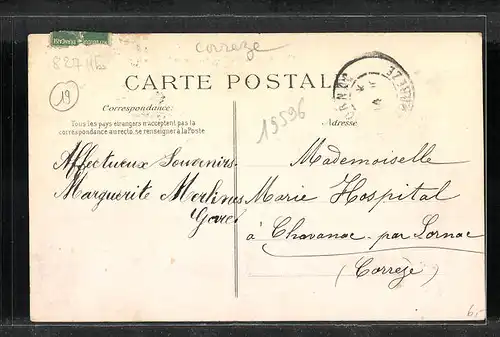 Corrèze
827 ME
19
CARTE POSTALE
Correspondance:
Tous les pays étrangers n'acceptent pas la
correspondance au recto, se renseigner à la Poste
15596
Adresse
CORRÈZE
Affectueux Souvenirs
Marguerite Merlines
Gare
Mademoiselle
Marie Hospital
à Chavanac par Sornac
(Corrèze)
6,-